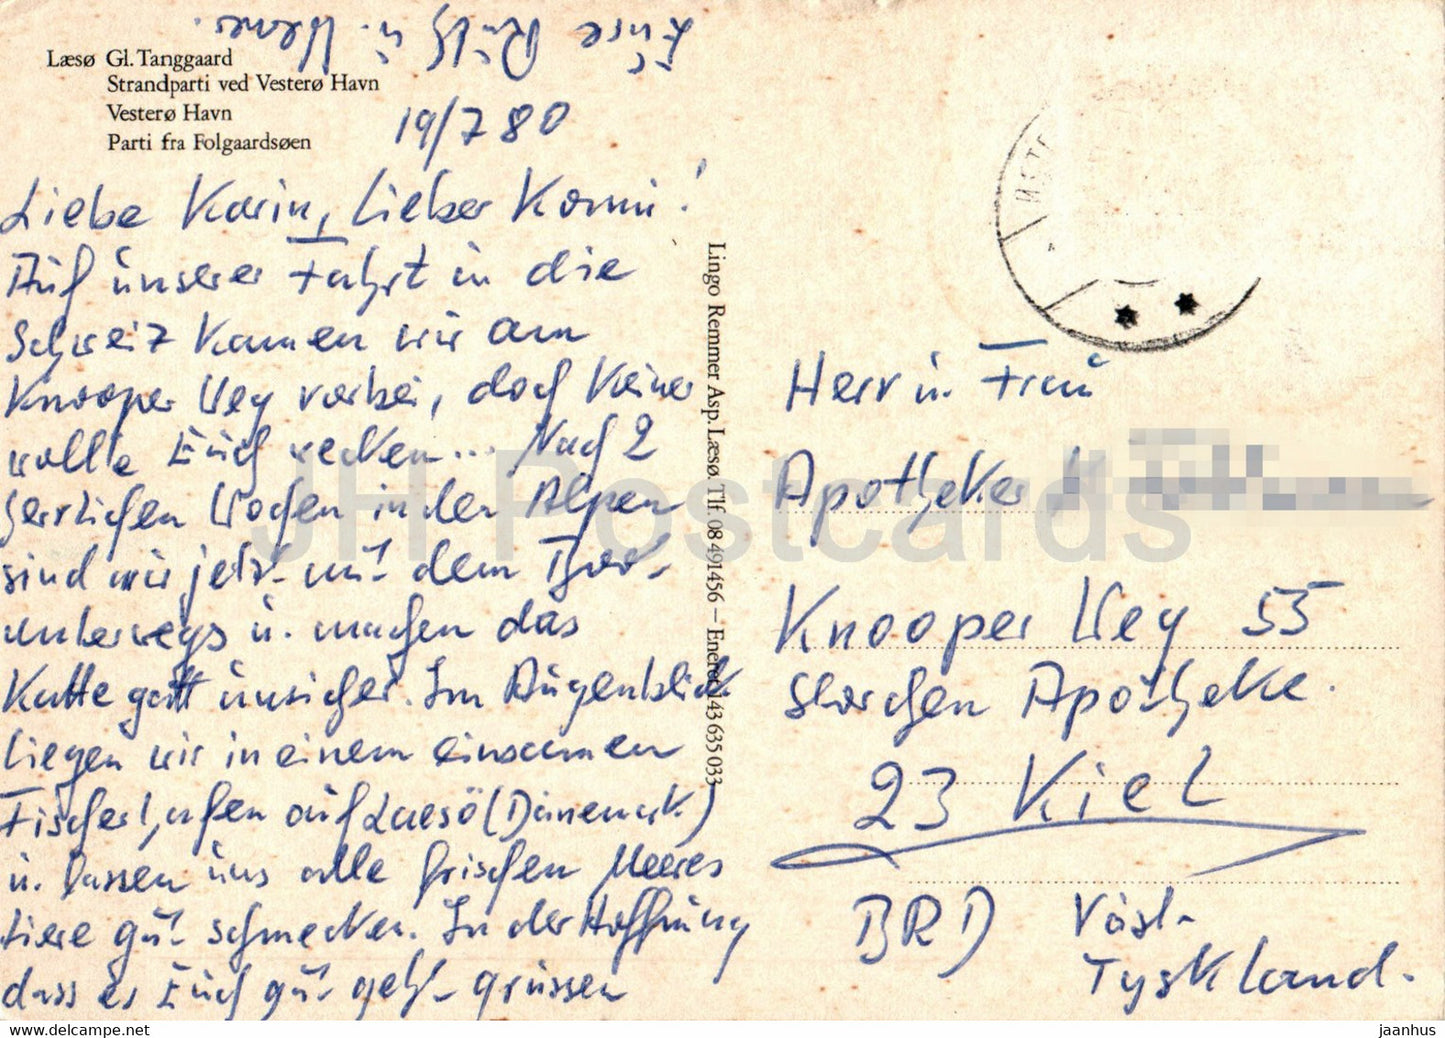 Læsø Gl. Tanggaard
Strandparti ved Vesterø Havn
Vesterø Havn
Parti fra Folgaardsøen
19/7 80
Liebe Karin, Lieber Konni!
Auf unserer Fahrt in die
Schweiz kamen wir am
Knooper Weg vorbei, doch keiner
wollte Euch wecken... Nach 2
herrlichen Wochen in den Alpen
sind wir jetzt mit dem Boot
unterwegs u. machen das
Kattegatt unsicher. Im Augenblick
liegen wir in einem einsamen
Fischerhafen auf Laesö (Dänemark)
u. lassen uns alle frischen Meeres
tiere gut schmecken. In der Hoffnung
dass es Euch gut geht grüssen
Eure
u.
Lingo Remmer Asp. Læsø. Tlf. 08 491456 – Eneret 143 635 033
Herr u. Frau
Apotheker
Knooper Weg 55
Storchen Apotheke.
23 Kiel
BRD Väst-
Tyskland.
JH Postcards
www.delcampe.net
jaanhus